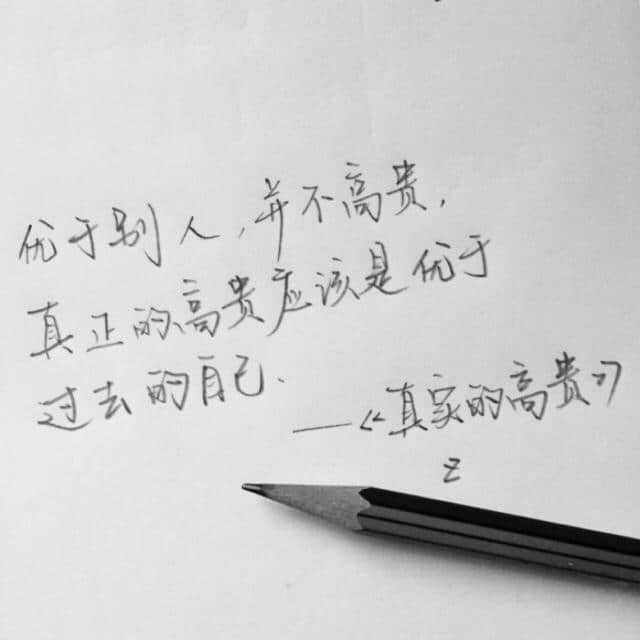 优于别人，并不高贵，
真正的高贵应该是优于
过去的自己.
——《真家的高贵》
z